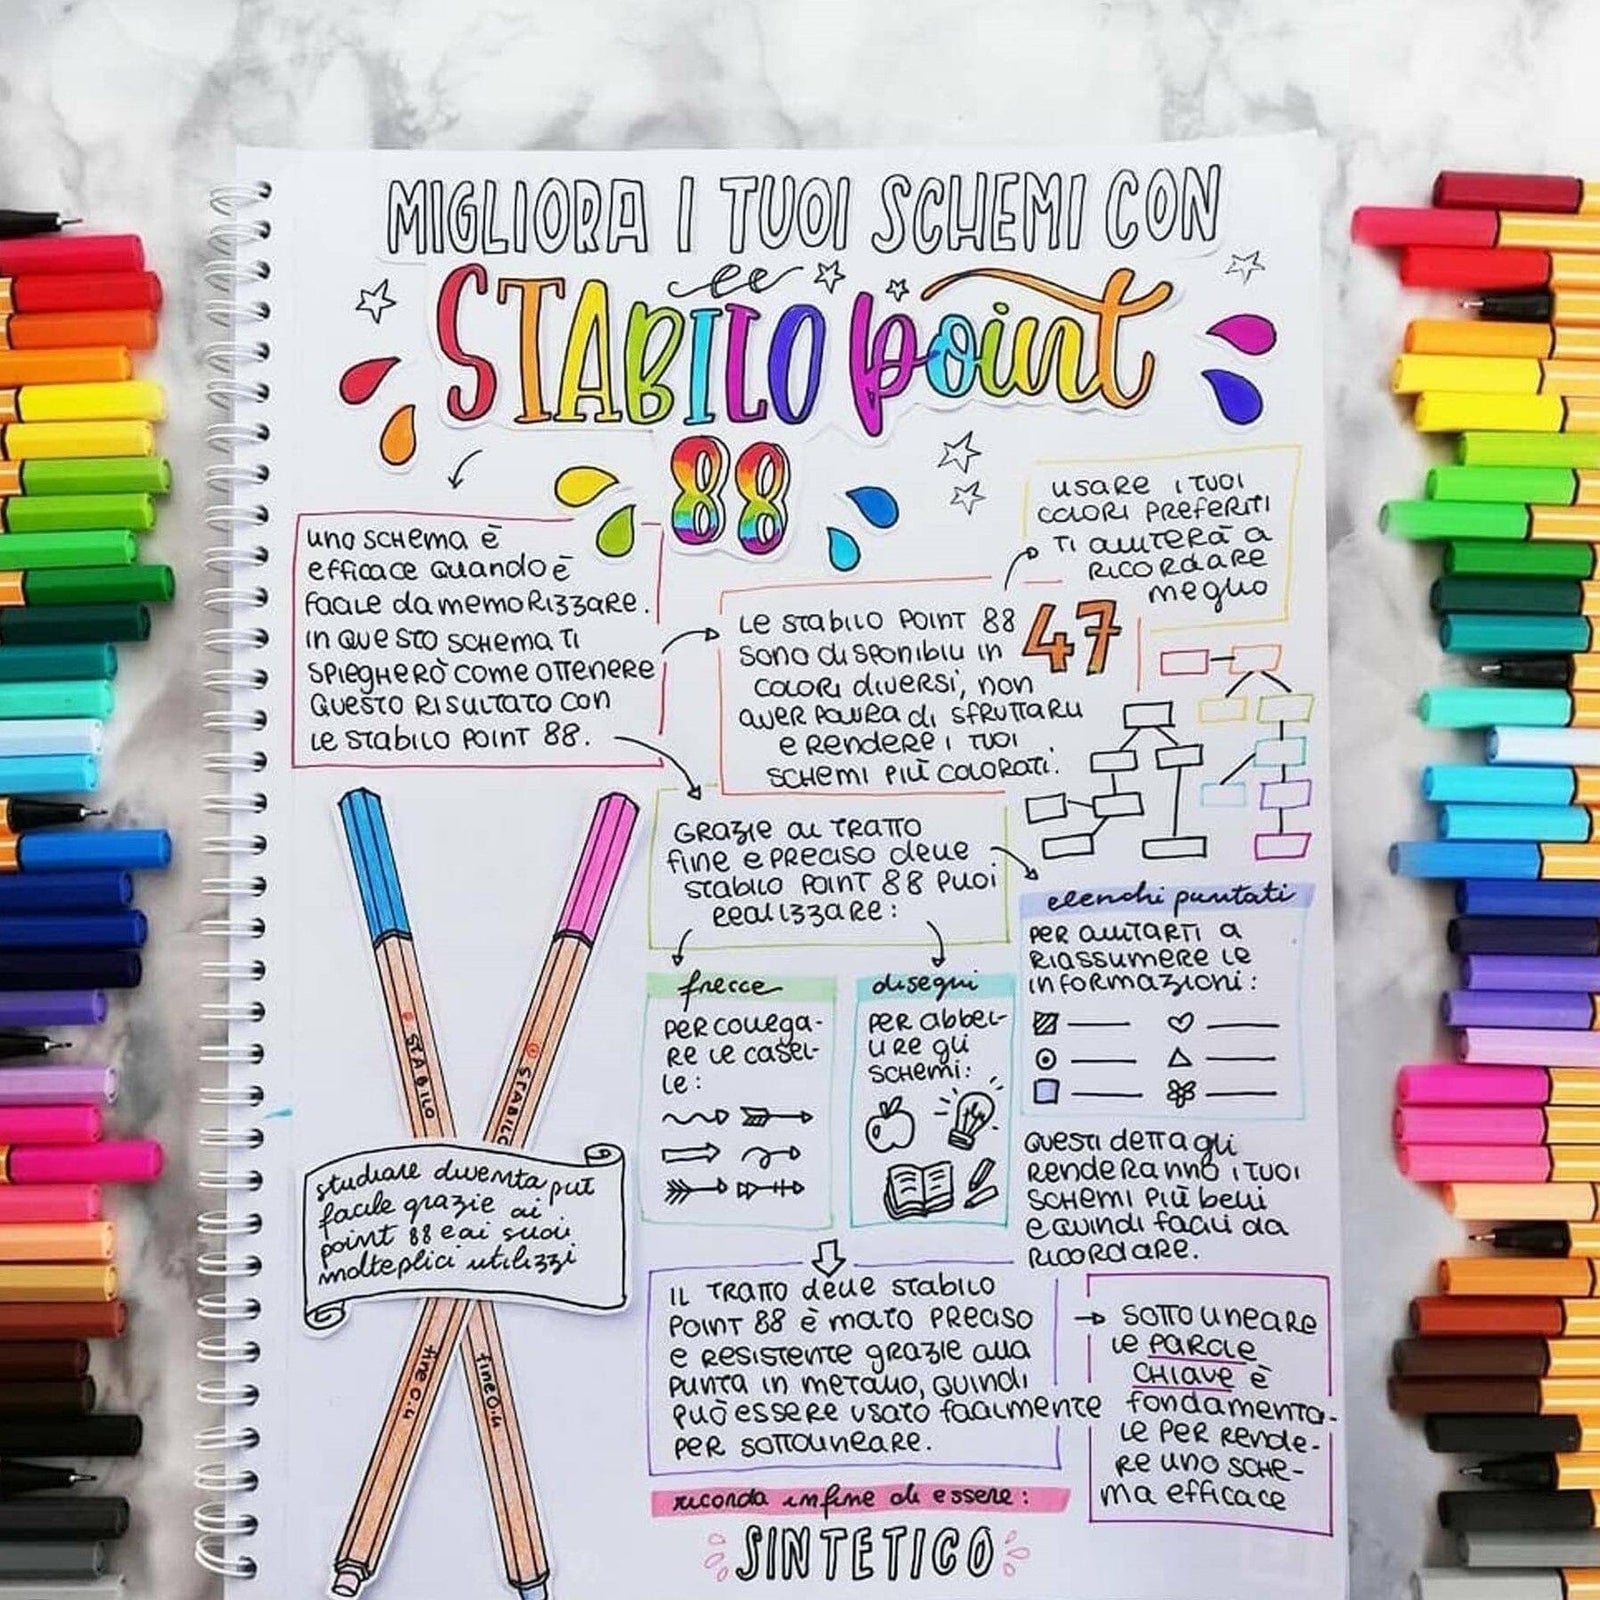 MIGLIORA I TUOI SCHEMI CON
STABILO point
88
uno schema è
efficace quando è
facile da memorizzare.
in questo schema ti
spiegherò come ottenere
questo risultato con
le stabilo point 88.
usare i tuoi
colori preferiti
ti aiuterà a
ricordare
meglio
le stabilo point 88 47
sono disponibili in
colori diversi, non
aver paura di sfruttarli
e rendere i tuoi
schemi più colorati.
grazie al tratto
fine e preciso delle
stabilo point 88 puoi
realizzare:
elenchi puntati
per aiutarti a
riassumere le
informazioni:
frecce
per collega-
re le casel-
le:
disegni
per abbel-
lire gli
schemi:
STABILO
STABILO
studiare diventa più
facile grazie ai
point 88 e ai suoi
molteplici utilizzi
fine 0.4
fine 0.4
questi dettagli
renderanno i tuoi
schemi più belli
e quindi facili da
ricordare.
il tratto delle stabilo
point 88 è molto preciso
e resistente grazie alla
punta in metallo, quindi
può essere usato facilmente
per sottolineare.
sottolineare
le parole
chiave è
fondamenta-
le per rende-
re uno sche-
ma efficace
ricorda infine di essere:
SINTETICO